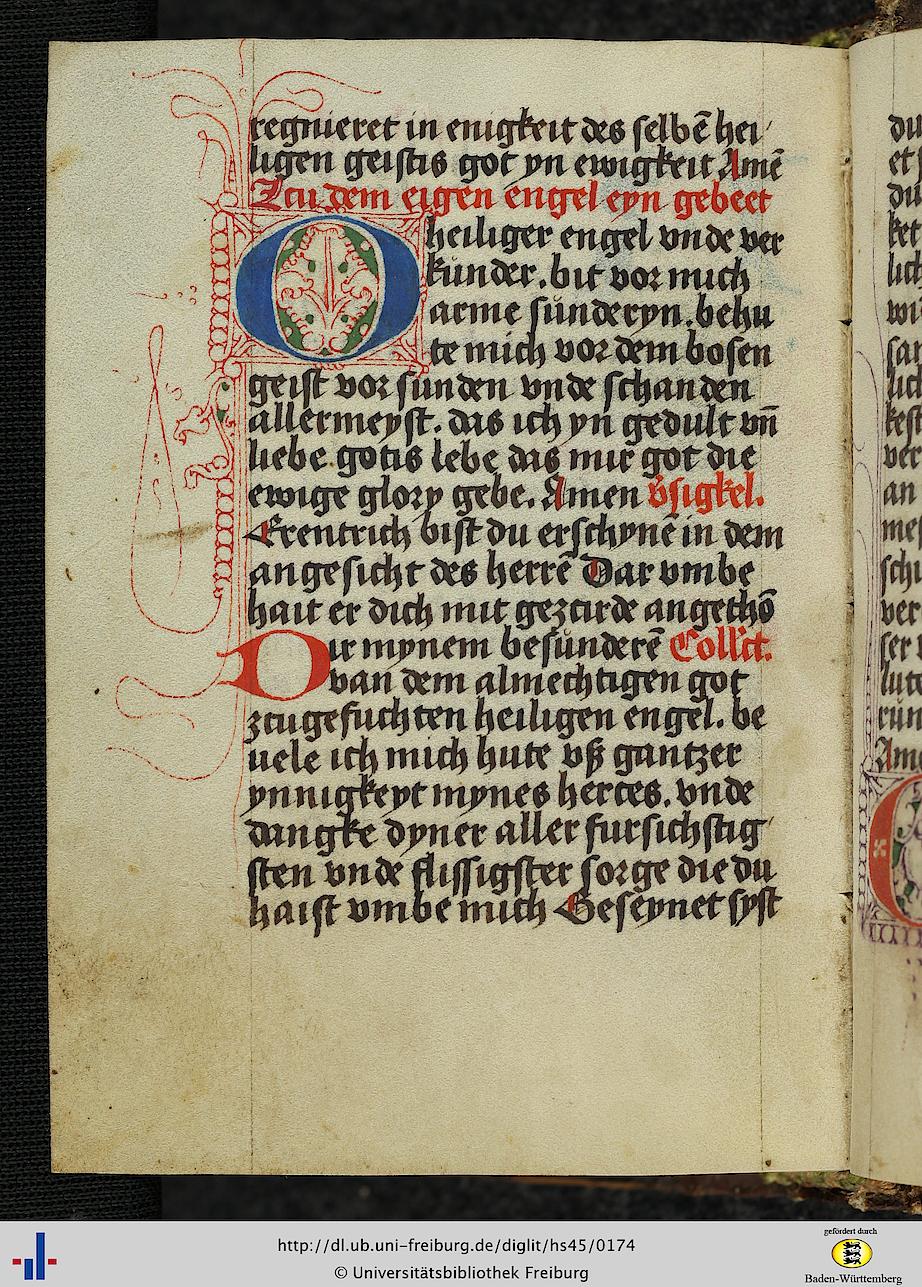 regnieret in enigkeit des selbē hei
ligen geistis got yn ewigkeit Amē
Zcu dem eigen engel eyn gebeet
O heiliger engel vnde ver
kunder. bit vor mich
arme sünderyn. behu
te mich vor dem bosen
geist vor sunden vnde schanden
allermeyst. das ich yn gedult vn̄
liebe gotis lebe das mir got die
ewige glory gebe. Amen v̄sigkel.
Erentrich bist du erschynē in dem
angesicht des herrē Dar vmbe
hait er dich mit gezcirde angethō
Dir mynem besünderē Coll'ct.
van dem almechtigen got
zcugefuchten heiligen engel. be
uele ich mich hute vß gantzer
ynnigkeyt mynes herces. vnde
dangke dyner aller fursichstig
sten vnde flissigster sorge die du
haist vmbe mich Geseynet syst
du
et
du
ket
lich
wi
san
lich
kest
ver
an
mes
schi
ver
ser
lute
rün
Ame
http://dl.ub.uni-freiburg.de/diglit/hs45/0174
© Universitätsbibliothek Freiburg
gefördert durch
Baden-Württemberg